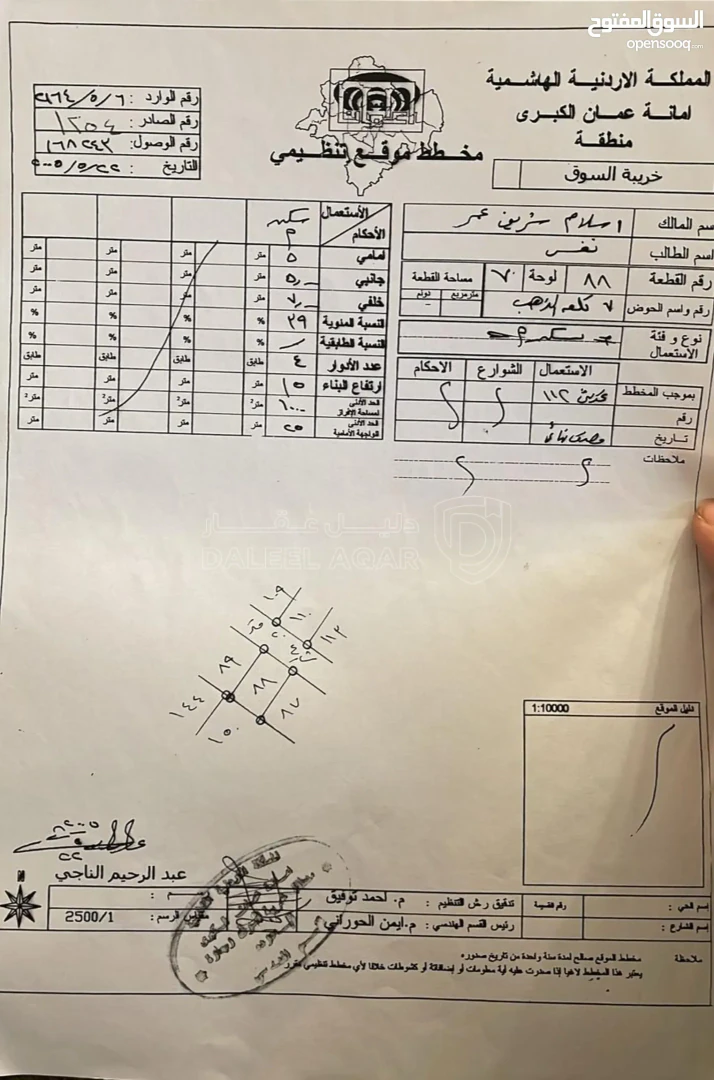 السوق المفتوح
opensooq.com
المملكة الاردنية الهاشمية
امانة عمان الكبرى
منطقة
خريبة السوق
مخطط موقع تنظيمي
رقم الوارد : ٢١٦٤/٥/٦
رقم الصادر : ١٢٥٤
رقم الوصول: ١٦٨٢٤٣
التاريخ : ٢٠٠٥/٥/٢٢
اسم المالك
اسلام شريف عمر
اسم الطالب
نفس
رقم القطعة ٨٨ لوحة ٧٠ مساحة القطعة
مترمربع دونم
رقم واسم الحوض ٧
نوع و فئة الاستعمال
الاستعمال الشوارع الاحكام
بموجب المخطط
١١٢
رقم
تاريخ
ملاحظات
الأستعمال سكن
الأحكام
أمامي ٥ متر متر متر متر
جانبي ٥ متر متر متر متر
خلفي ٧ متر متر متر متر
النسبة المئوية ٣٩ % % % %
النسبة الطابقية % % % %
عدد الأدوار ٤ طابق طابق طابق طابق
ارتفاع البناء ١٥ متر متر متر متر
الحد الأدنى لمساحة الإفراز ١٠٠٠ متر² متر² متر² متر²
الحد الأدنى للواجهة الأمامية ٢٥ متر متر متر متر
دليل عقار
DALEEL AQAR
١٠٩
١١٠
١١٢
٨٩
٨٨
٨٧
١٤٤
١٥٠
دليل الموقع 1:10000
عبد الرحيم الناجي
إسم الحي : رقم القسيمة تدقيق رش التنظيم : م. احمد توفيق
إسم الشارع : رئيس القسم الهندسي : م.ايمن الحوراني مقياس الرسم : 2500/1
ملاحظة مخطط الموقع صالح لمدة سنة واحدة من تاريخ صدوره
يعتبر هذا المخطط لاغيا إذا صدرت عليه أية معلومات أو إضافاتة أو كشوطات خلافا لأي مخطط تنظيمي مقرر